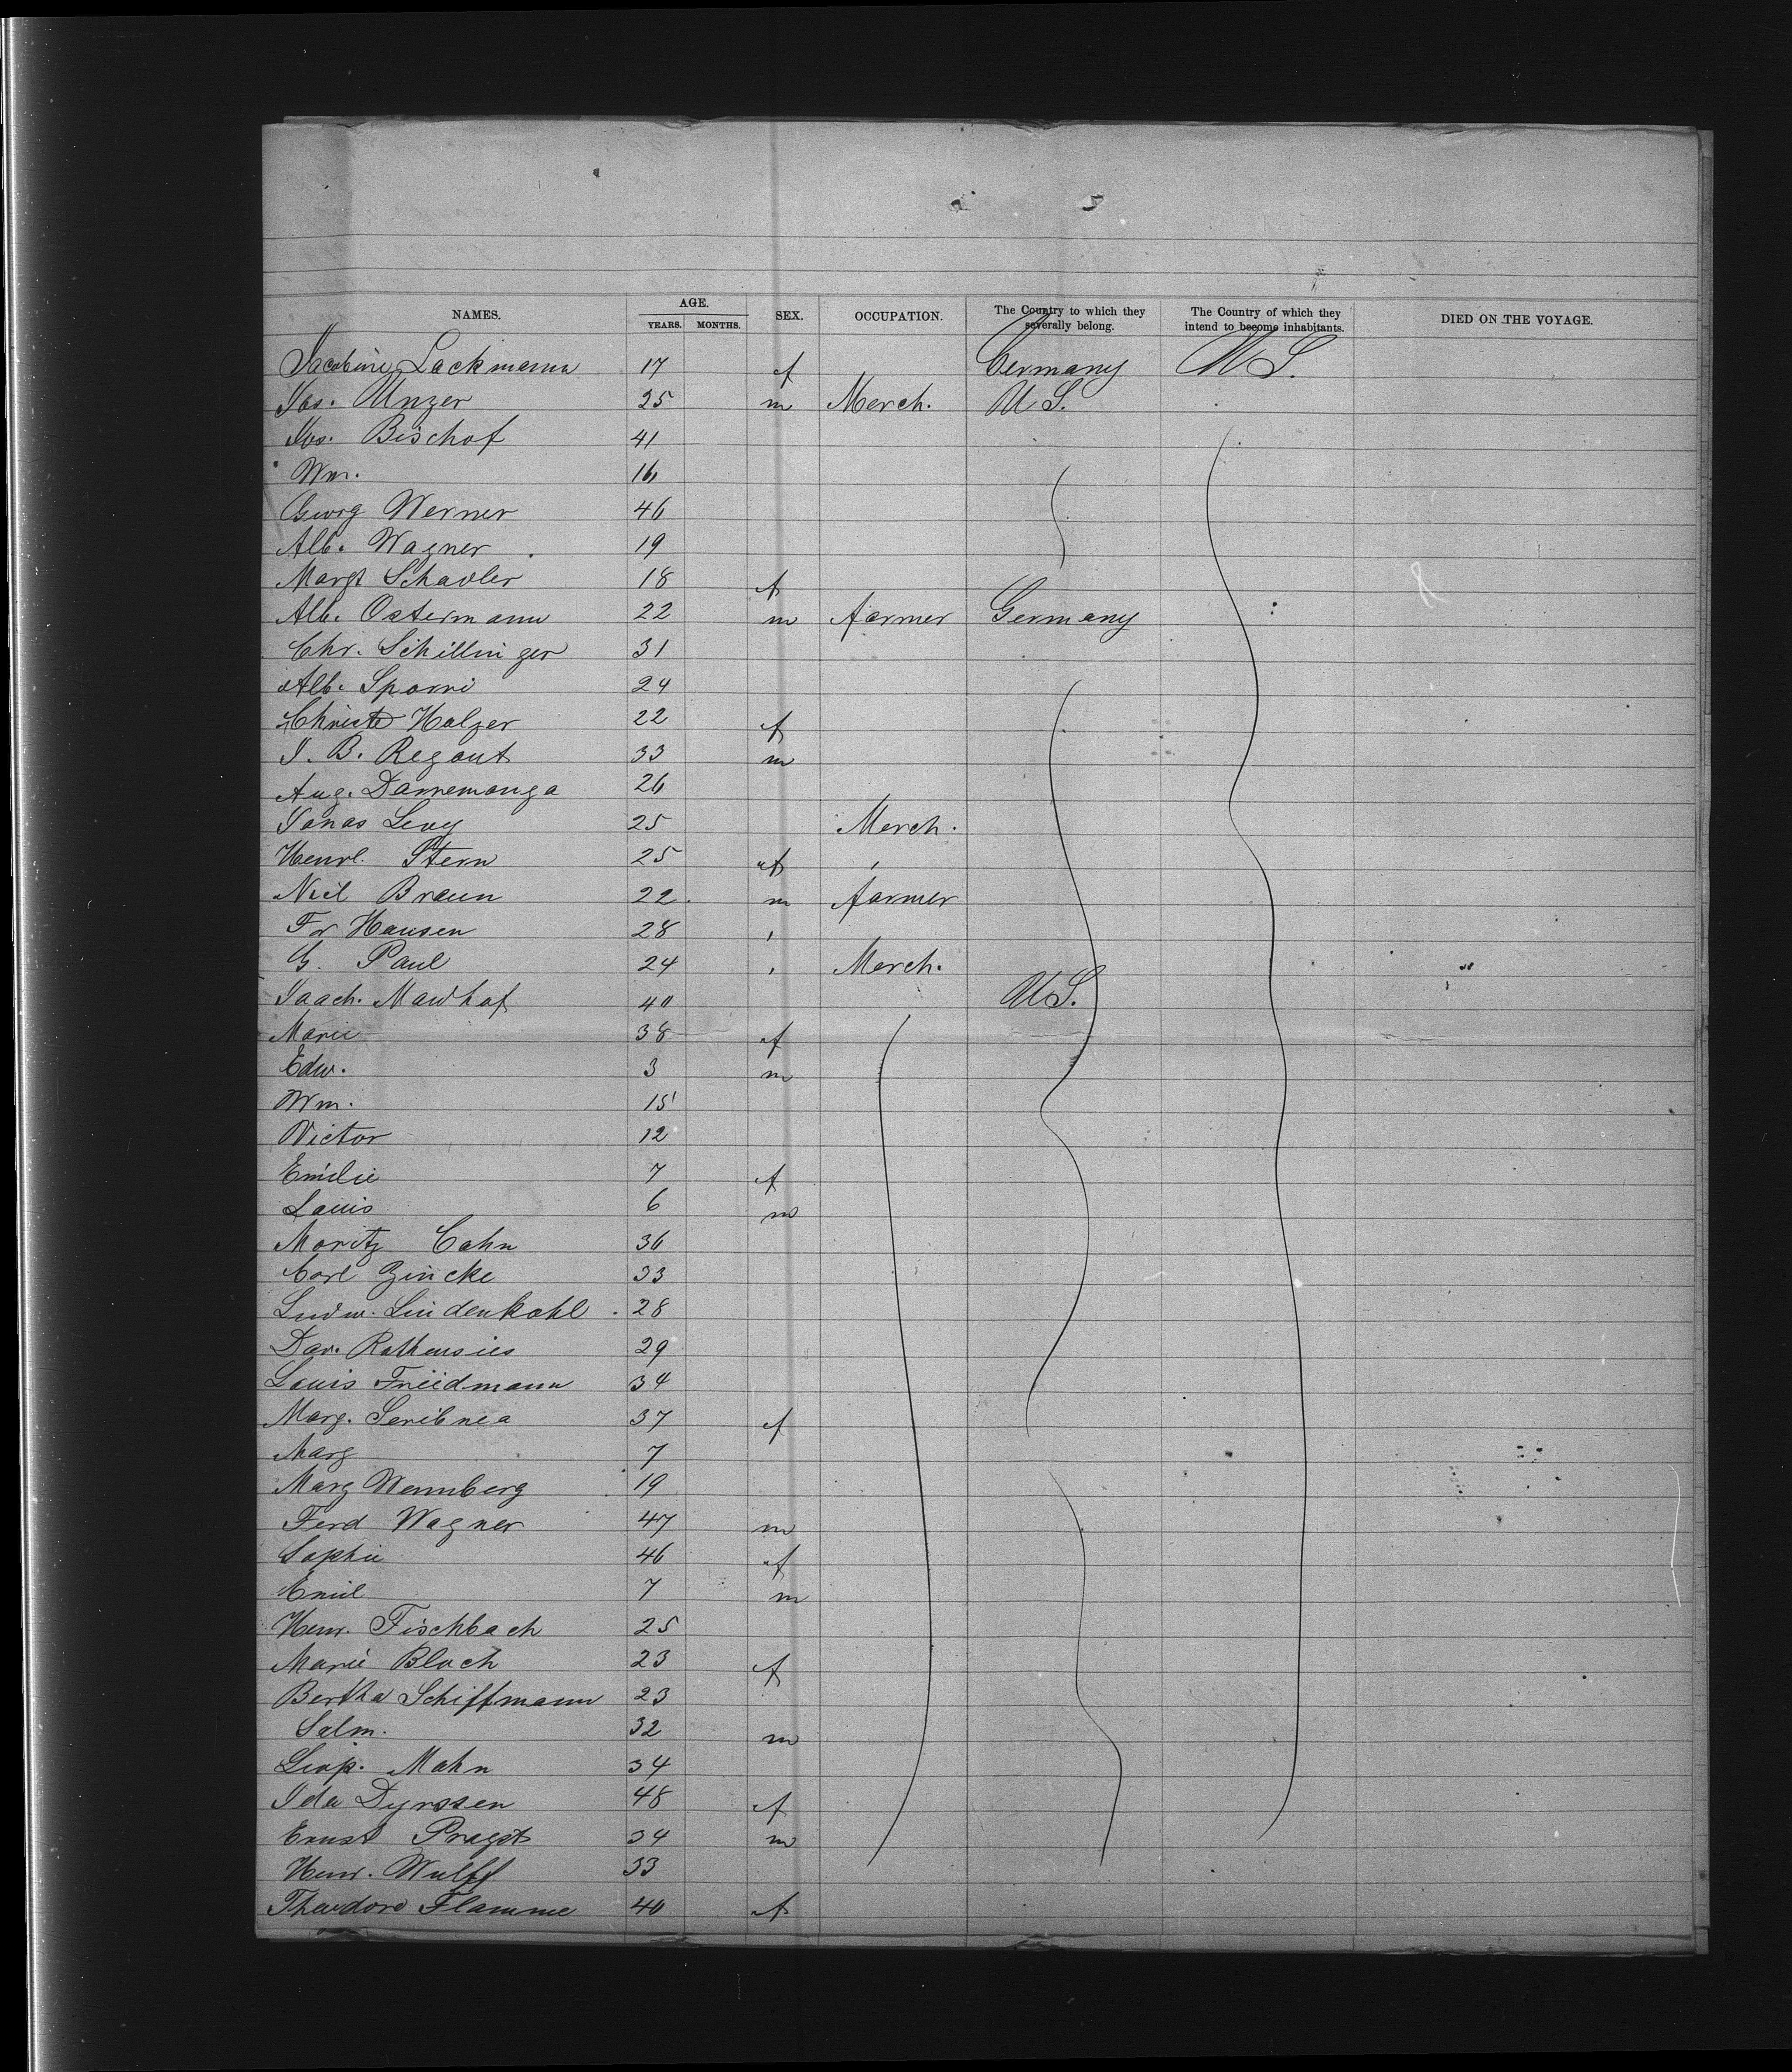 NAMES. AGE. SEX. OCCUPATION. The Country to which they severally belong. The Country of which they intend to become inhabitants. DIED ON THE VOYAGE.
YEARS. MONTHS.
Jacobine Lackmann 17 f Germany U S.
Jos. Unzer 25 m Merch. U S.
Jos. Bischof 41
Wm. 16
Georg Werner 46
Alb. Wagner 19
Margt Schavler 18 f
Alb. Ostermann 22 m farmer Germany
Chr. Schillinger 31
Alb. Sporri 24
Christe Holzer 22 f
J. B. Regout 33 m
Aug. 26
Jonas Levy 25 Merch.
Henrl. Stern 25 f
Neil Braun 22 m farmer
Fr Hansen 28
G. Paul 24 Merch.
Maidhof 40 U S.
Marie 38 f
Edw. 3 m
Wm. 15
Victor 12
Emilie 7 f
Louis 6 m
Moritz Cohn 36
Carl Zincke 33
Ludw. Lindenkohl 28
Dav. 29
Louis Friedmann 34
Marg. 37 f
Marg 7
Marg Wennberg 19
Ferd Wagner 47 m
Sophie 46 f
Emil 7 m
Henr. Fischbach 25
Marie Bloch 23 f
Bertha Schiffmann 23
Salm. 32 m
Leop. Mahn 34
Ida Dyrssen 48 f
Ernst Pragst 34 m
Henr. Wulff 33
Theodore Flamme 40 f